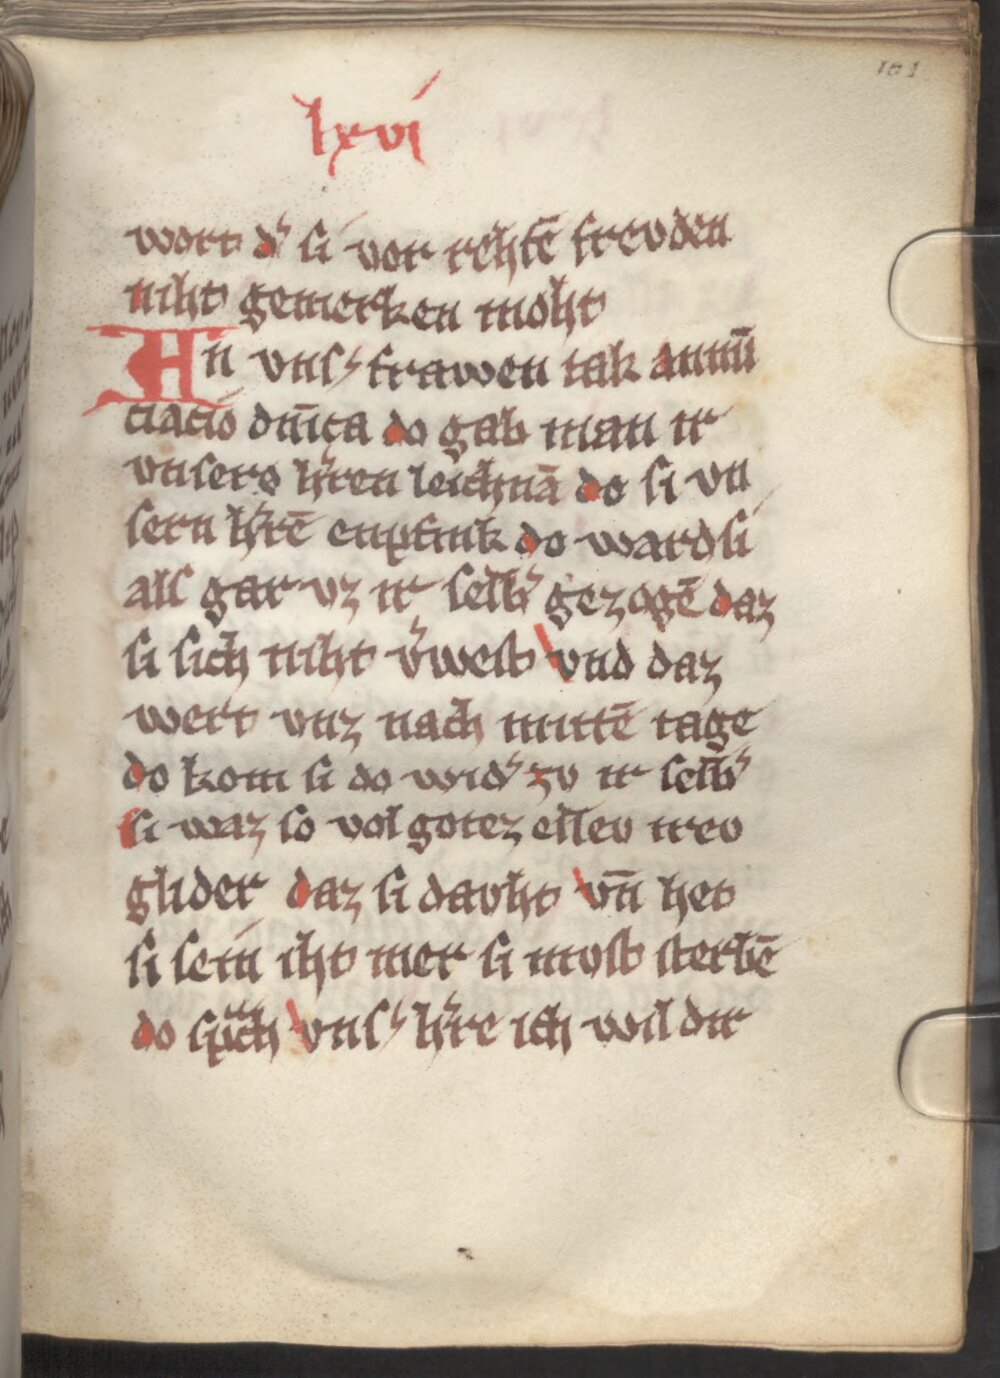 101
lxvi
wort d' si vor rehtē frevden
niht gemerken moht
An vns' frawen tak annū
ciacio dn̄ica do gab man ir
vnsers h'ren leichnā do si vn
sern h'rē enpfink do ward si
als gar vz ir selb' gezogē daz
si sich niht v'west vnd daz
wert vnz nach mittē tage
do kom si do wid' zv ir selb'
si waz so vol gotez ellev irev
glider daz si davht vn̄ het
si sein iht mer si most sterbē
do sp̄ch vns' h're ich wil dir